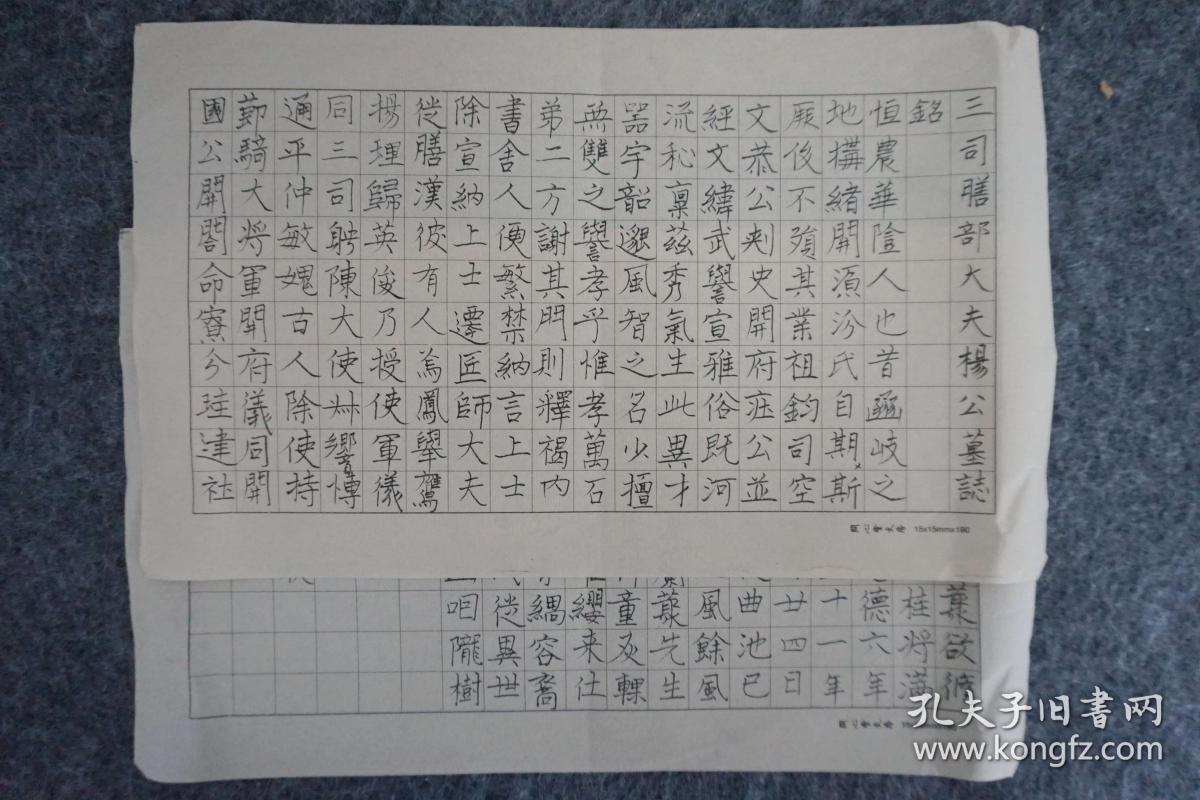 三司膳部大夫楊公墓誌
銘
恒農華陰人也昔豳岐之
地構緒開源汾氏自期斯
厥後不殞其業祖鈞司空
文恭公刺史開府莊公並
經文緯武譽宣雅俗既河
流祕稟茲秀氣生此異才
器宇韶邈風智之名少擅
無雙之譽孝乎惟孝萬石
弟二方謝其門則釋褐内
書舍人便繁禁納言上士
除宣納上士遷匠師大夫
從膳漢彼有人焉鳳舉鴈
揚理歸英俊乃授使軍儀
同三司聘陳大使州嚮愽
通平仲敏媿古人除使持
勤騎大將軍開府儀同開
國公開閤命寮分珪建社
15x15mmx190
欲
桂將滿
德六年
十一年
廿四日
曲池巳
風餘風
先生
童及輠
纓来仕
緺容裔
從異世
咽隴樹
孔夫子旧書网
www.kongfz.com